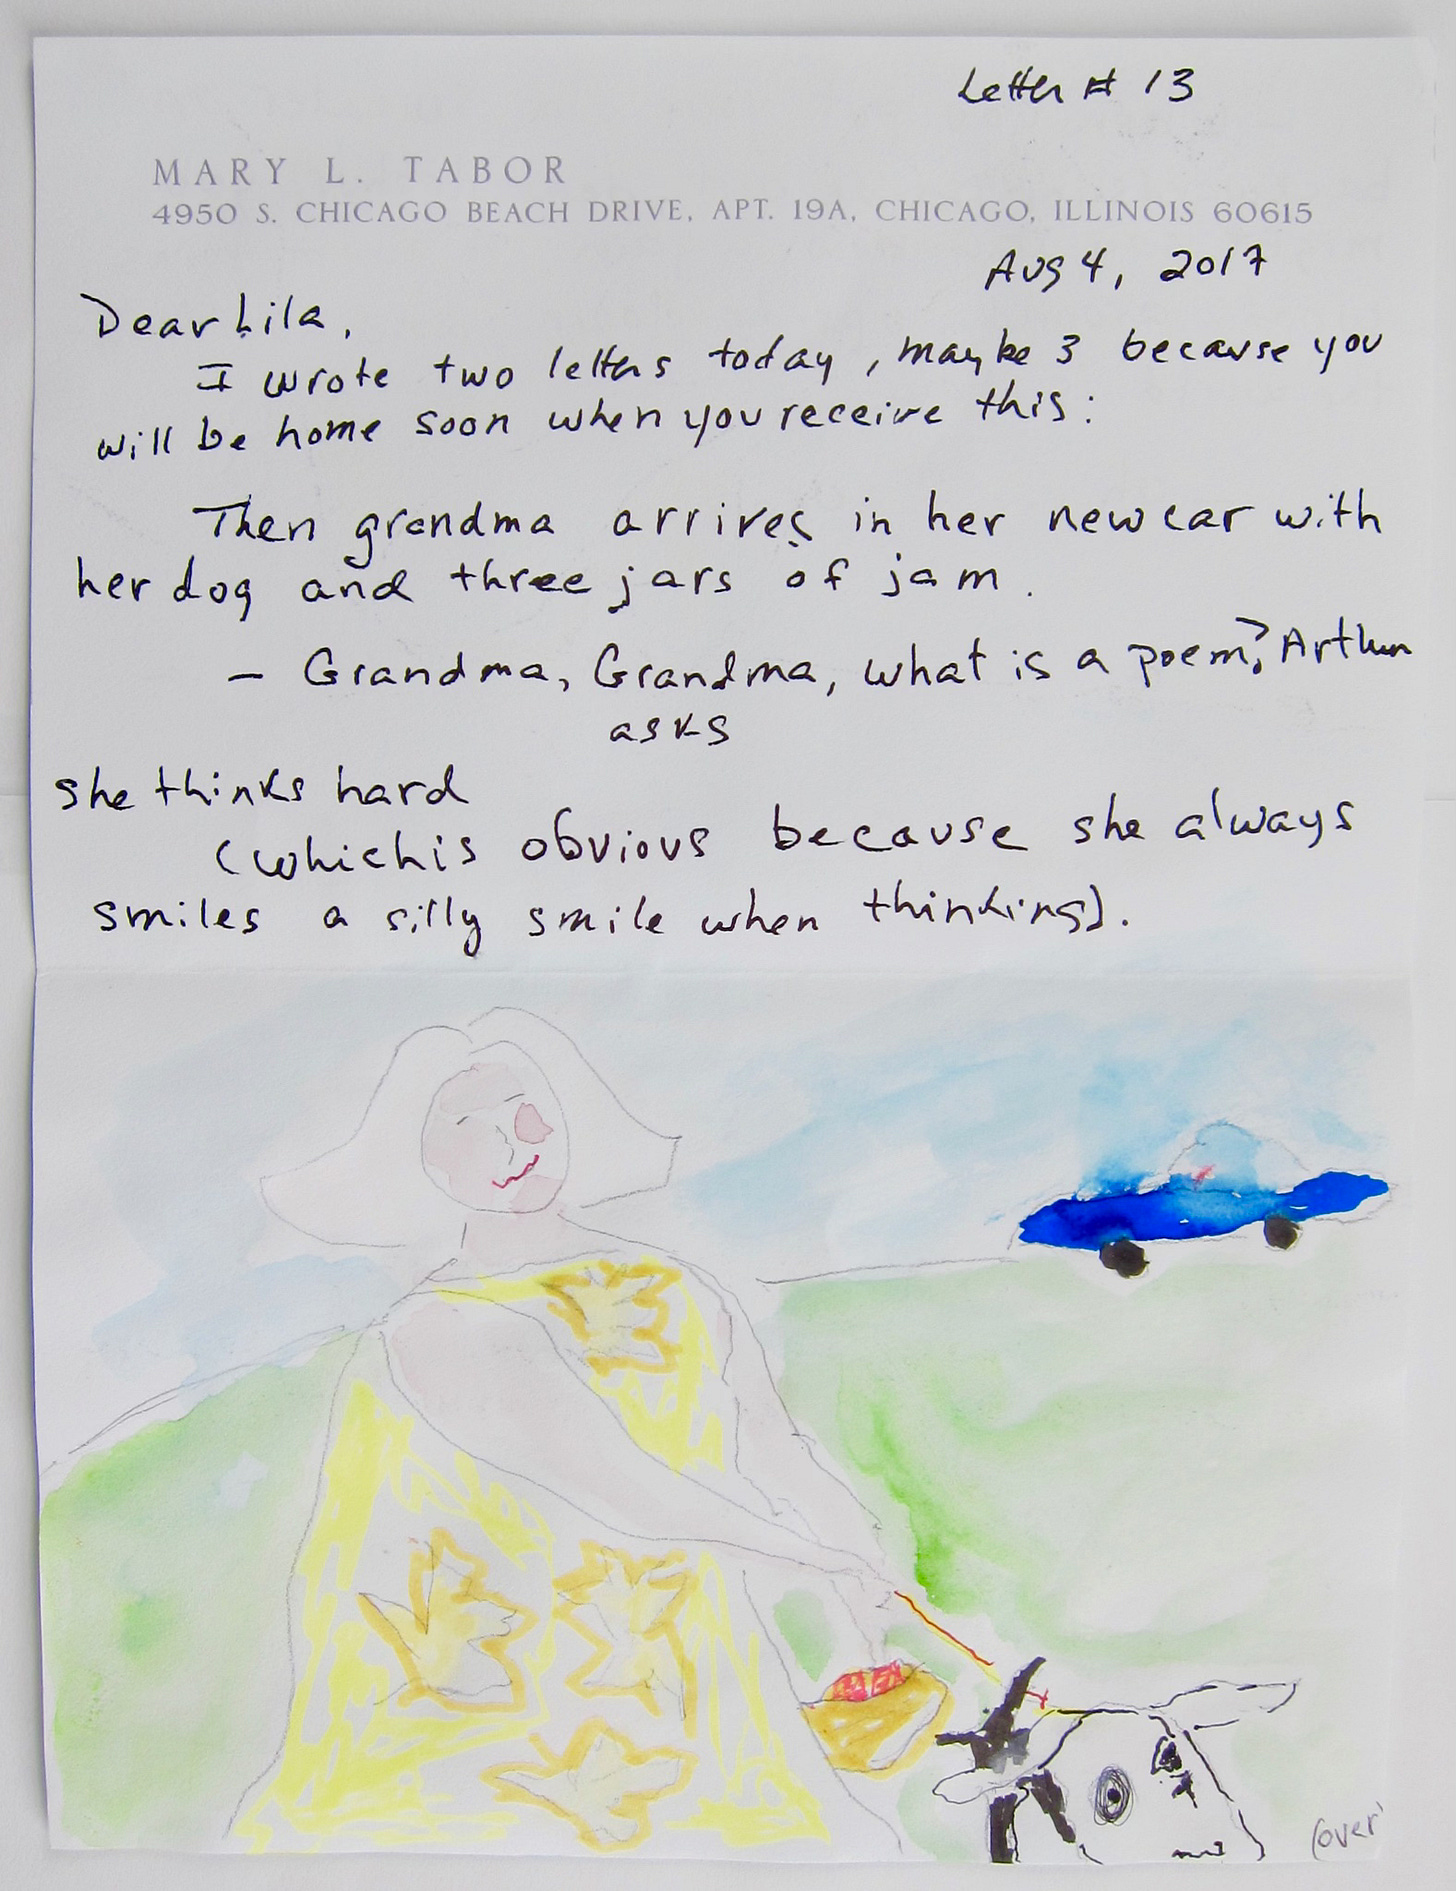 Letter # 13
MARY L. TABOR
4950 S. CHICAGO BEACH DRIVE, APT. 19A, CHICAGO, ILLINOIS 60615
Aug 4, 2017
Dear Lila,
I wrote two letters today, maybe 3 because you
will be home soon when you receive this:
Then grandma arrives in her new car with
her dog and three jars of jam.
— Grandma, Grandma, what is a poem? Arthur
asks
she thinks hard
(which is obvious because she always
smiles a silly smile when thinking).
(over)